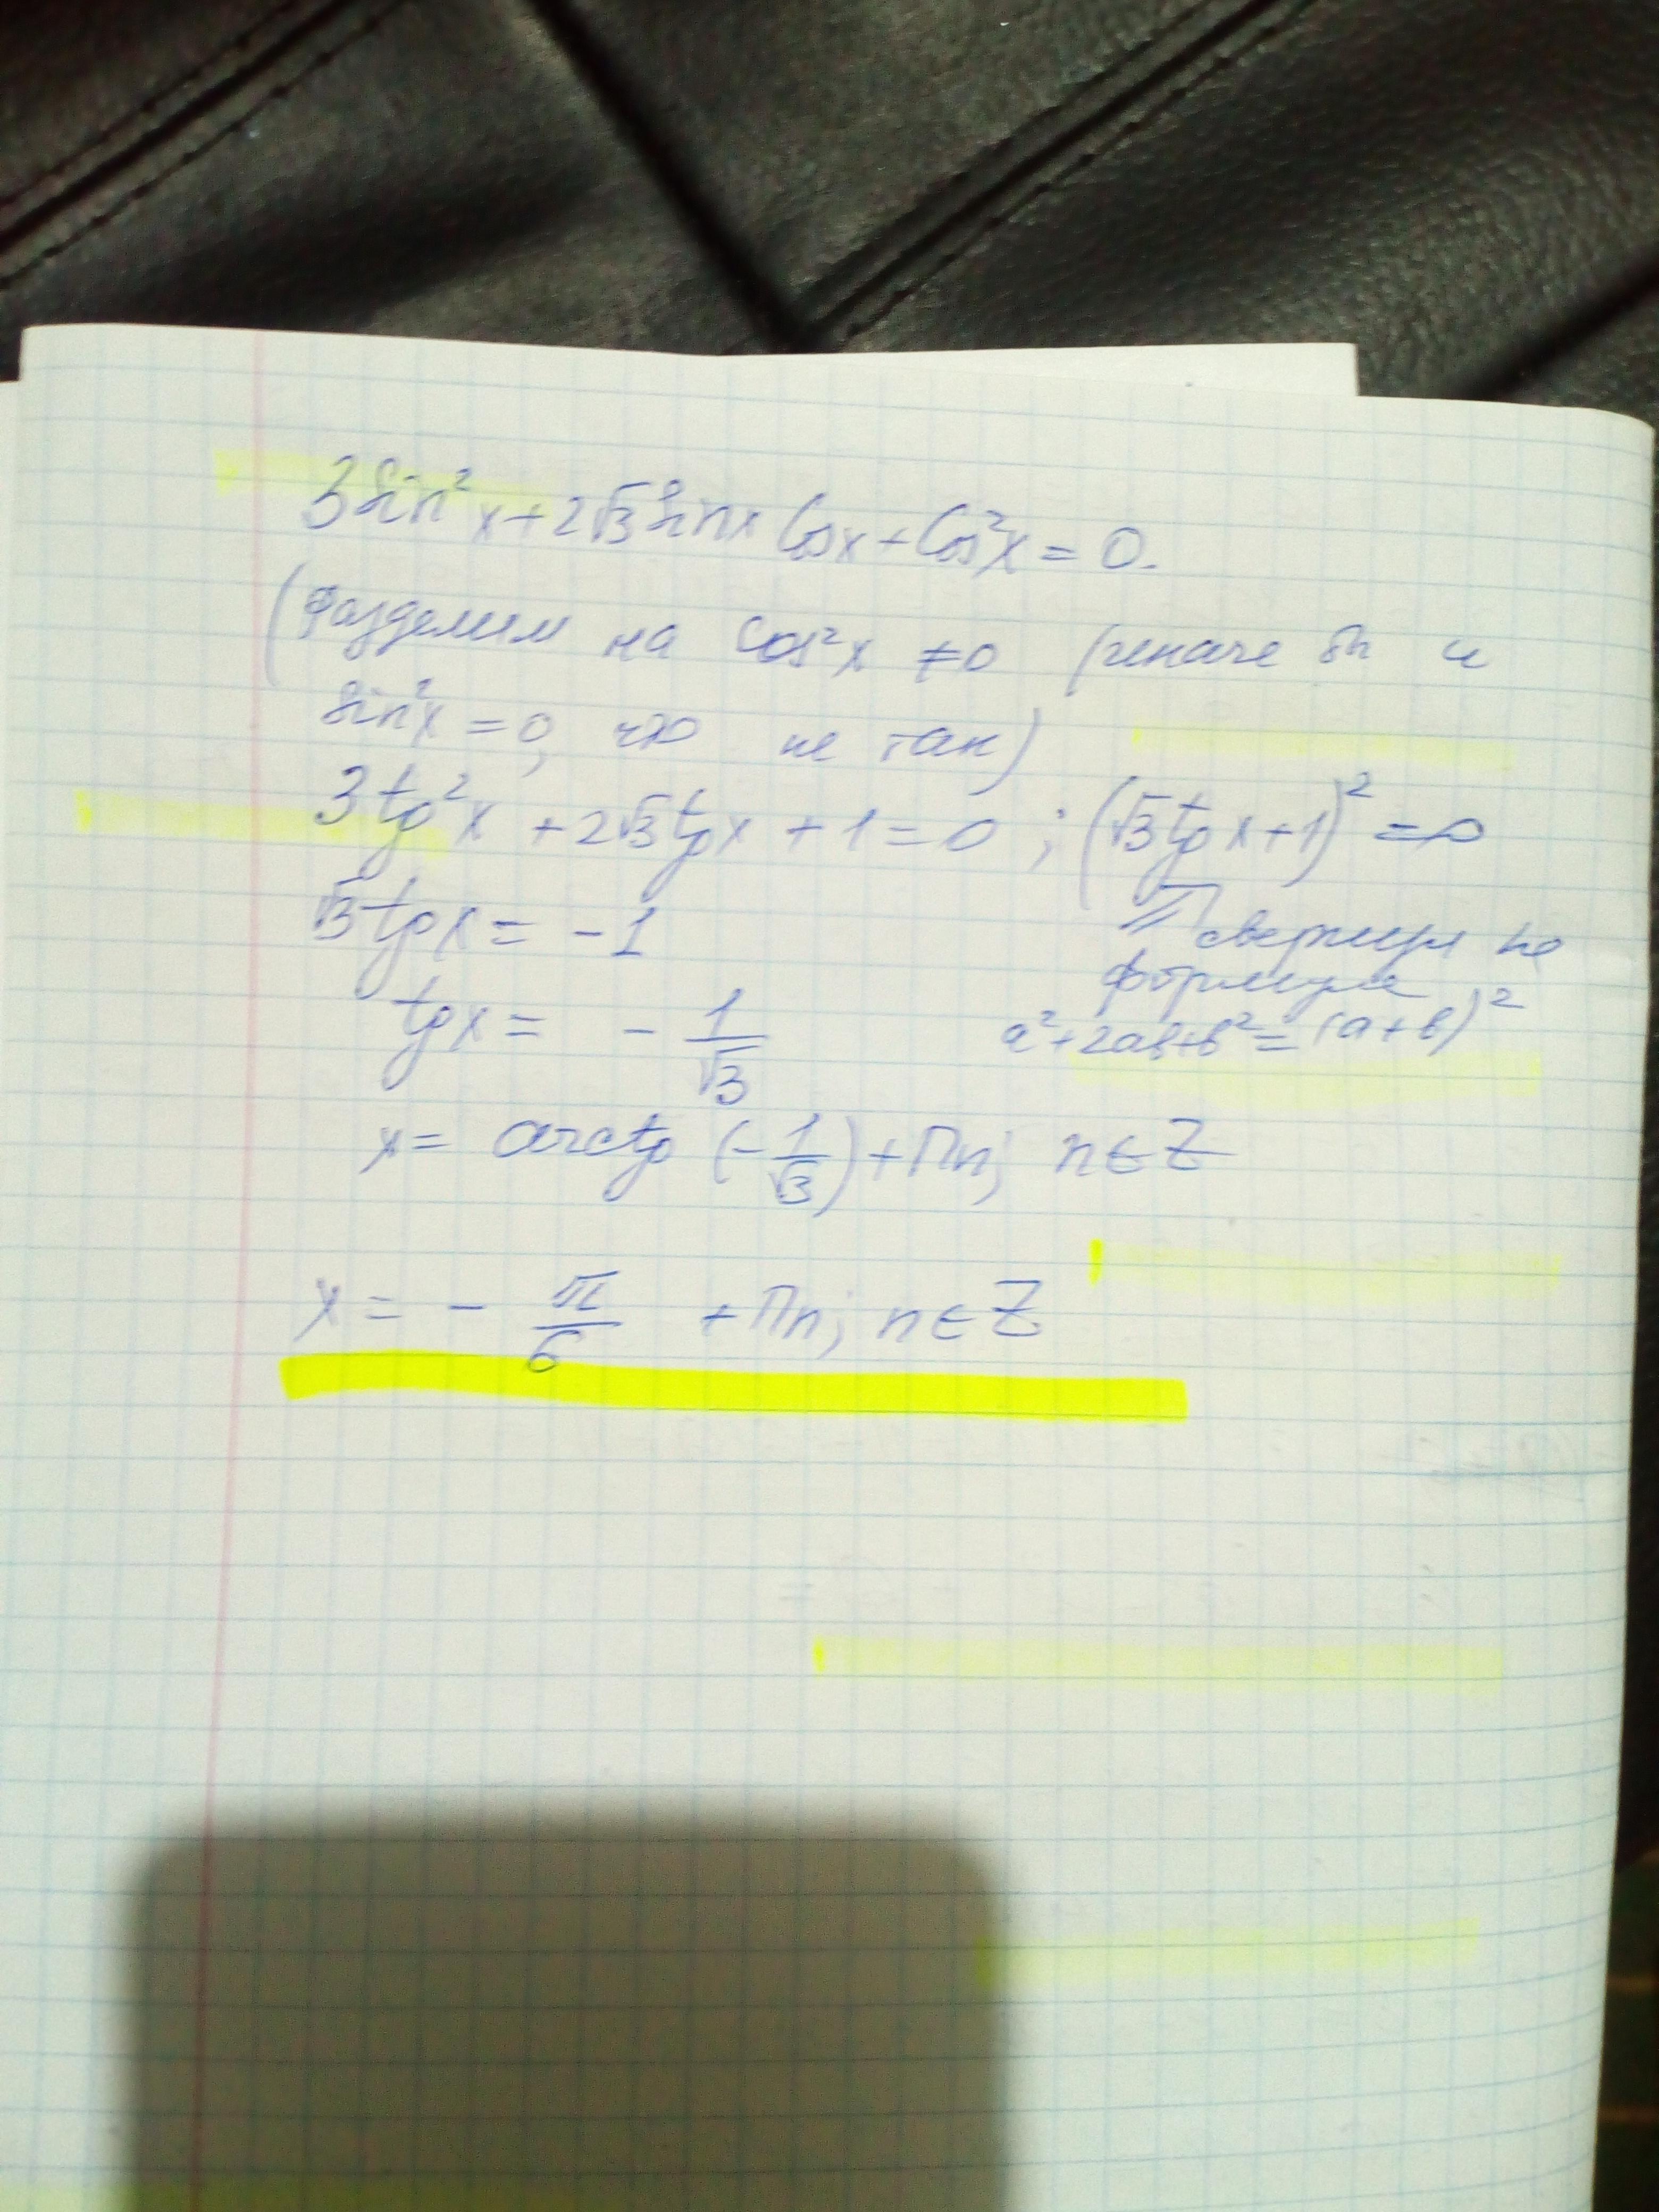 3sin²x+2√3sinx cosx+cos²x=0.
(разделим на cos²x ≠0 (иначе бы и
sin²x =0, что не так)
3tg²x +2√3tgx +1=0 ; (√3tgx+1)²=0
√3tgx= -1
свернули по
формуле
tgx= - 1/√3
a²+2ab+b²=(a+b)²
x= arctg (-1/√3)+πn; n∈Z
x= - π/6 +πn; n∈Z